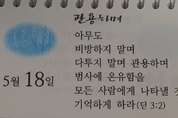 관용하며
아무도
비방하지 말며
다투지 말며 관용하며
범사에 온유함을
모든 사람에게 나타낼 것
기억하게 하라(딛 3:2)
5월 18일